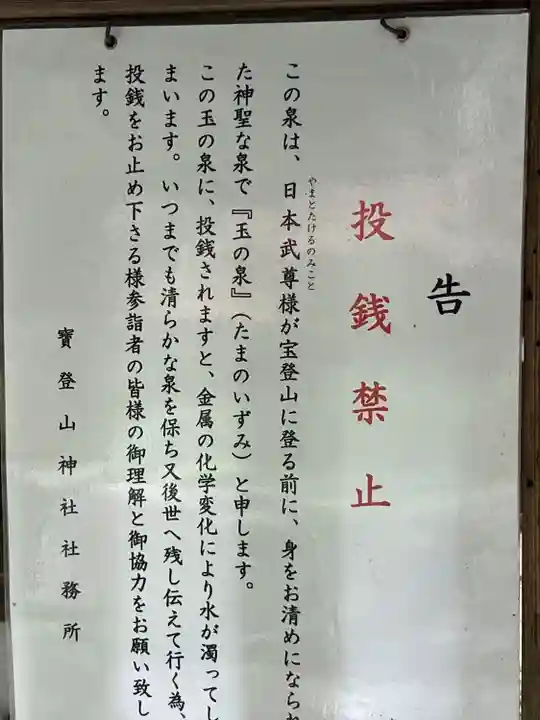 告
投銭禁止
この泉は、日本武尊様が宝登山に登る前に、身をお清めになられ
やまとたけるのみこと
た神聖な泉で『玉の泉』(たまのいずみ)と申します。
この玉の泉に、投銭されますと、金属の化学変化により水が濁ってし
まいます。いつまでも清らかな泉を保ち又後世へ残し伝えて行く為、
投銭をお止め下さる様参詣者の皆様の御理解と御協力をお願い致し
ます。
寶登山神社社務所